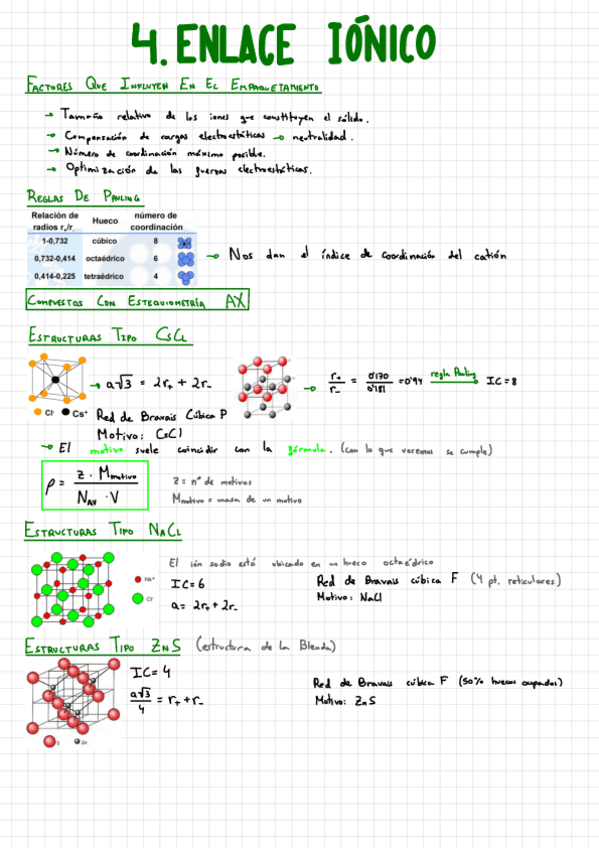 4. ENLACE IÓNICO
FACTORES QUE INFLUYEN EN EL EMPAQUETAMIENTO
→ Tamaño relativo de los iones que constituyen el sólido.
→ Compensación de cargas electrostáticas → neutralidad.
→ Número de coordinación máximo posible.
→ Optimización de las fuerzas electrostáticas.
REGLAS DE PAULING
Relación de radios r+/r- Hueco número de coordinación
1-0,732 cúbico 8
0,732-0,414 octaédrico 6
0,414-0,225 tetraédrico 4
→ Nos dan el índice de coordinación del catión
COMPUESTOS CON ESTEQUIOMETRÍA AX
ESTRUCTURAS TIPO CsCl
→ a√3 = 2r+ + 2r-
→ r+/r- = 0'170/0'181 = 0'94 regla Pauling IC = 8
Cl- Cs+
Red de Bravais Cúbica P
Motivo: CsCl
→ El motivo suele coincidir con la fórmula. (con lo que veremos se cumple)
ρ = z · Mmotivo / NAV · V
z = nº de motivos
Mmotivo = masa de un motivo
ESTRUCTURAS TIPO NaCl
El ión sodio está ubicado en un hueco octaédrico
Na+
Cl-
IC = 6
a = 2r+ + 2r-
Red de Bravais cúbica F (4 pt. reticulares)
Motivo: NaCl
ESTRUCTURAS TIPO ZnS (estructura de la Blenda)
IC = 4
a√3/4 = r+ + r-
Red de Bravais cúbica F (50% huecos ocupados)
Motivo: ZnS
S Zn